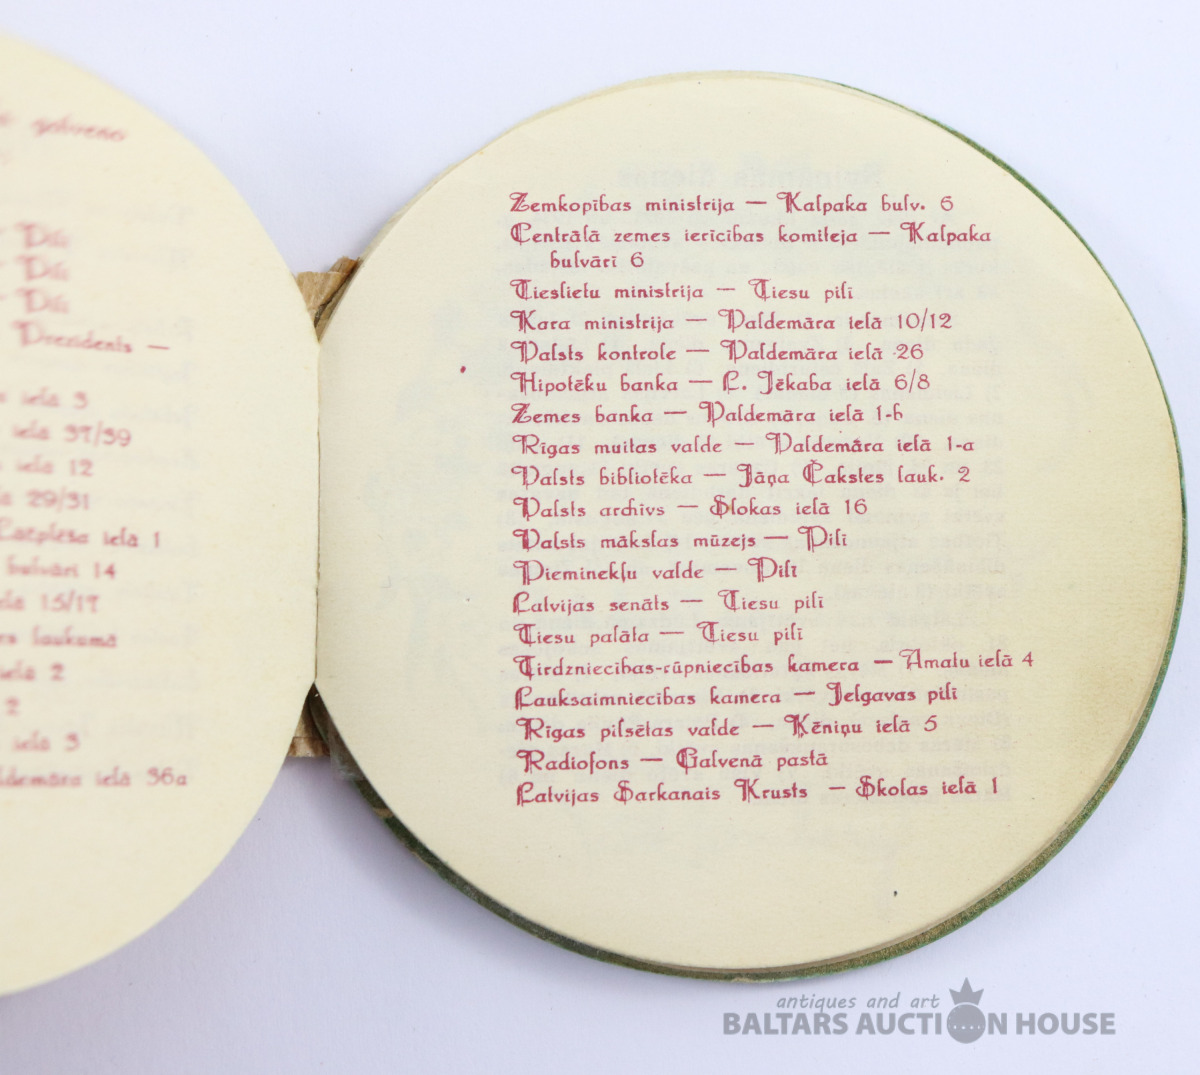 galveno
Pilī
Pilī
Pilī
Prezidents —
ielā 3
ielā 37/39
ielā 12
29/31
Lāčplēša ielā 1
bulvārī 14
15/17
laukumā
ielā 2
2
ielā 3
ldemāra ielā 36a
Zemkopības ministrija — Kalpaka bulv. 6
Centrālā zemes ierīcības komiteja — Kalpaka
bulvārī 6
Tieslietu ministrija — Tiesu pilī
Kara ministrija — Valdemāra ielā 10/12
Valsts kontrole — Valdemāra ielā 26
Hipotēku banka — L. Jēkaba ielā 6/8
Zemes banka — Valdemāra ielā 1-b
Rīgas muitas valde — Valdemāra ielā 1-a
Valsts bibliotēka — Jāņa Čakstes lauk. 2
Valsts archīvs — Slokas ielā 16
Valsts mākslas mūzejs — Pilī
Pieminekļu valde — Pilī
Latvijas senāts — Tiesu pilī
Tiesu palāta — Tiesu pilī
Tirdzniecības-rūpniecības kamera — Amatu ielā 4
Lauksaimniecības kamera — Jelgavas pilī
Rīgas pilsētas valde — Kēniņu ielā 5
Radiofons — Galvenā pastā
Latvijas Sarkanais Krusts — Skolas ielā 1
antiques and art
BALTARS AUCTION HOUSE